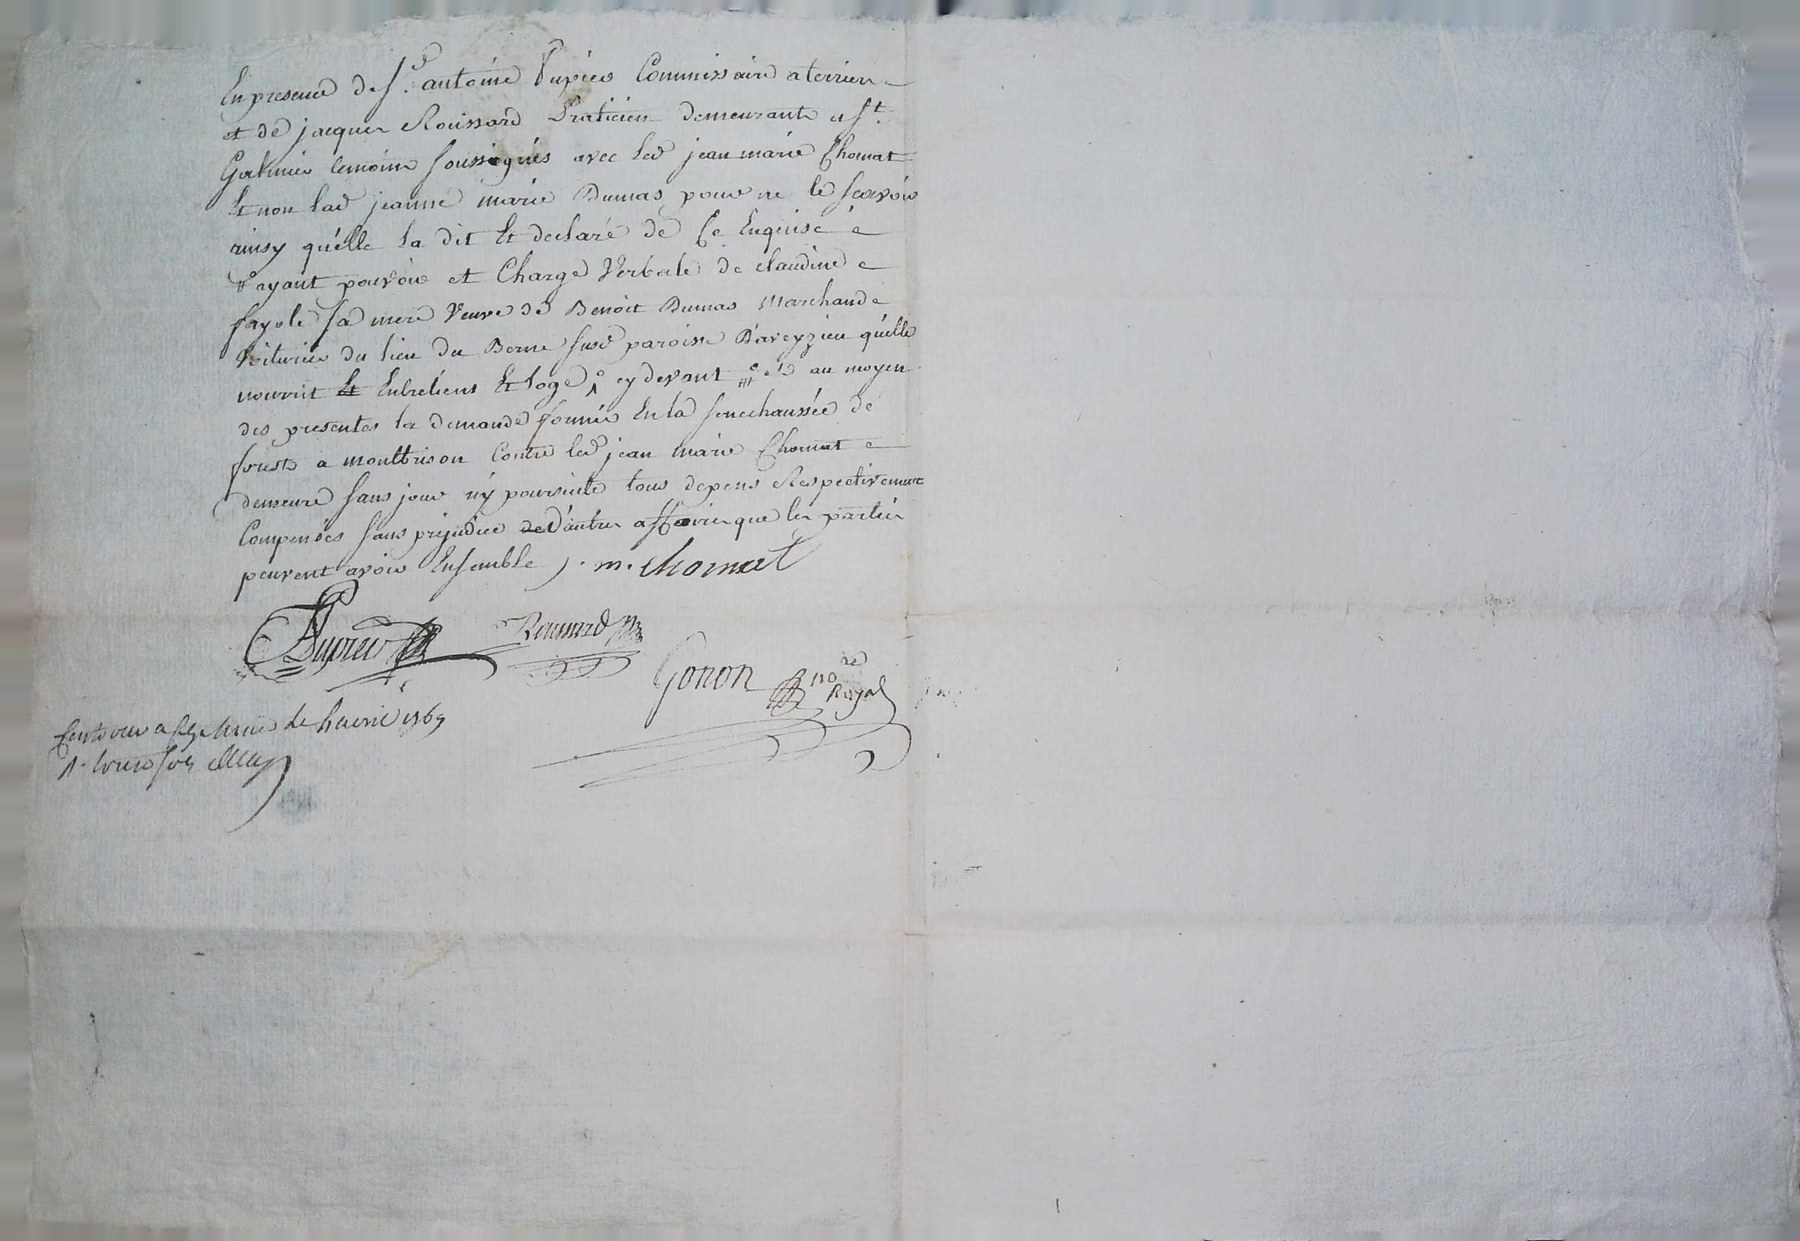 En presence de Sr. antoine Pupier Commissaire a terrier
et de jacques Roussard Praticien demeurants a St.
Galmier temoins soussignés avec led jean marie Chomat
Et non lad jeanne marie Dumas pour ne le scavoir
ainsy qu'elle la dit Et declaré de Ce Enquise
# ayant pouvoir et Charge Verbale de claudine
fayole sa mere Veuve de Benoit Dumas Marchand
Voiturier du lieu du Berne susd paroisse D'aveyzieu qu'elle
nourrit Et Entretiens Et loge cy devant au moyen
des presentes la demande formée En la senechaussée de
forests a montbrison Contre led jean marie Chomat
demeure sans jour n'y poursuite tous depens Respectivement
Compensés sans prejudice de d'autres affaires que les parties
peuvent avoir Ensemble j. m. chomat
Pupier Roussard
Gonon no.re Royal
a St galmier le h avril 1769